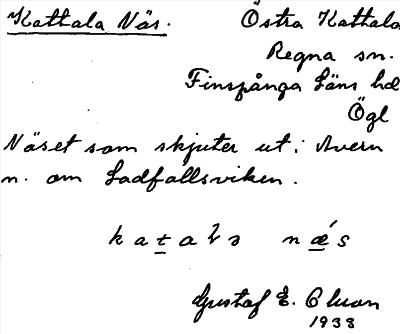 Kattala Näs. Östra Kattala
Regna sn.
Finspånga Läns hd
Ögl
Näset som skjuter ut i Avern
n. om Ladfallsviken.
Gustaf E.
1938